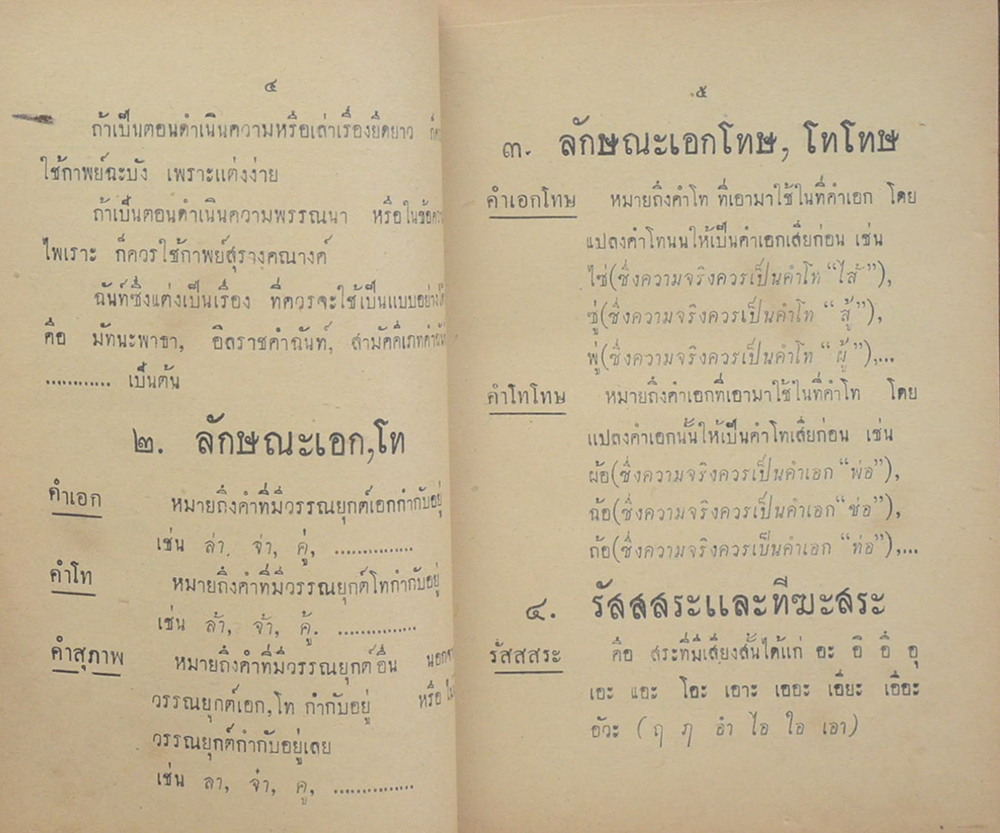 ๔
ถ้าเป็นตอนดำเนินความหรือเล่าเรื่องยืดยาว
ใช้กาพย์ฉะบัง เพราะแต่งง่าย
ถ้าเป็นตอนดำเนินความพรรณนา หรือในข้อ
ไพเราะ ก็ควรใช้กาพย์สุรางคณางค์
ฉันท์ซึ่งแต่งเป็นเรื่อง ที่ควรจะใช้เป็นแบบอย่าง
คือ มัทนะพาธา, อิลราชคำฉันท์, สามัคคีเภทคำ
............ เป็นต้น
๒. ลักษณะเอก,โท
คำเอก หมายถึงคำที่มีวรรณยุกต์เอกกำกับอยู่
เช่น ล่า, จ่า, คู่, ...............
คำโท หมายถึงคำที่มีวรรณยุกต์โทกำกับอยู่
เช่น ล้ำ, จ้ำ, คู้. ...............
คำสุภาพ หมายถึงคำที่มีวรรณยุกต์อื่น
วรรณยุกต์เอก,โท กำกับอยู่ หรือ
วรรณยุกต์กำกับอยู่เลย
เช่น ลา, จ๋า, คู, ...............
๕
๓. ลักษณะเอกโทษ, โทโทษ
คำเอกโทษ หมายถึงคำโท ที่เอามาใช้ในที่คำเอก โดย
แปลงคำโทนนให้เป็นคำเอกเสียก่อน เช่น
ไซ่(ซึ่งความจริงควรเป็นคำโท "ไส้"),
ซู่(ซึ่งความจริงควรเป็นคำโท "สู้"),
พู่(ซึ่งความจริงควรเป็นคำโท "ผู้"),...
คำโทโทษ หมายถึงคำเอกที่เอามาใช้ในที่คำโท โดย
แปลงคำเอกนั้นให้เป็นคำโทเสียก่อน เช่น
ผ้อ(ซึ่งความจริงควรเป็นคำเอก "พ่อ"),
ฉ้อ(ซึ่งความจริงควรเป็นคำเอก "ช่อ"),
ถ้อ(ซึ่งความจริงควรเป็นคำเอก "ท่อ"),...
๔. รัสสสระและทีฆะสระ
รัสสสระ คือ สระที่มีเสียงสั้นได้แก่ อะ อิ อึ อุ
เอะ แอะ โอะ เอาะ เออะ เอียะ เอือะ
อัวะ (ฤ ฦ อำ ไอ ใอ เอา)